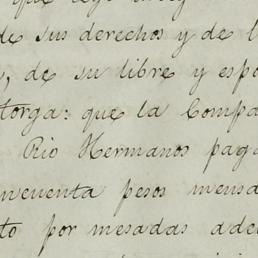 de sus derechos y de l
, de su libre y espo
torga: que la Compa
Rio Hermanos paga
ncuenta pesos mensa
to por mesadas adel